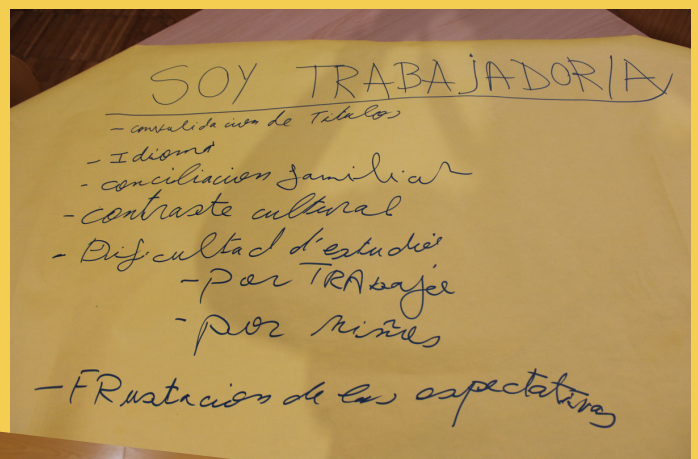 SOY TRABAJADOR/A
- convalidacion de Titulos
- Idioma
- conciliacion familiar
- contraste cultural
- Dificultad d'estudio
- por TRAbajo
- por niños
- FRustacion de las espectativas